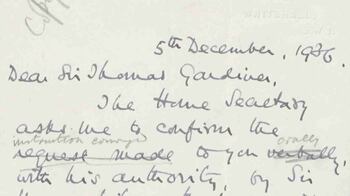 Copy
5th December, 1936.
Dear Sir Thomas Gardiner,
The Home Secretary
asks me to confirm the
instruction conveyed orally
request made to you verbally,
with his authority, by Sir